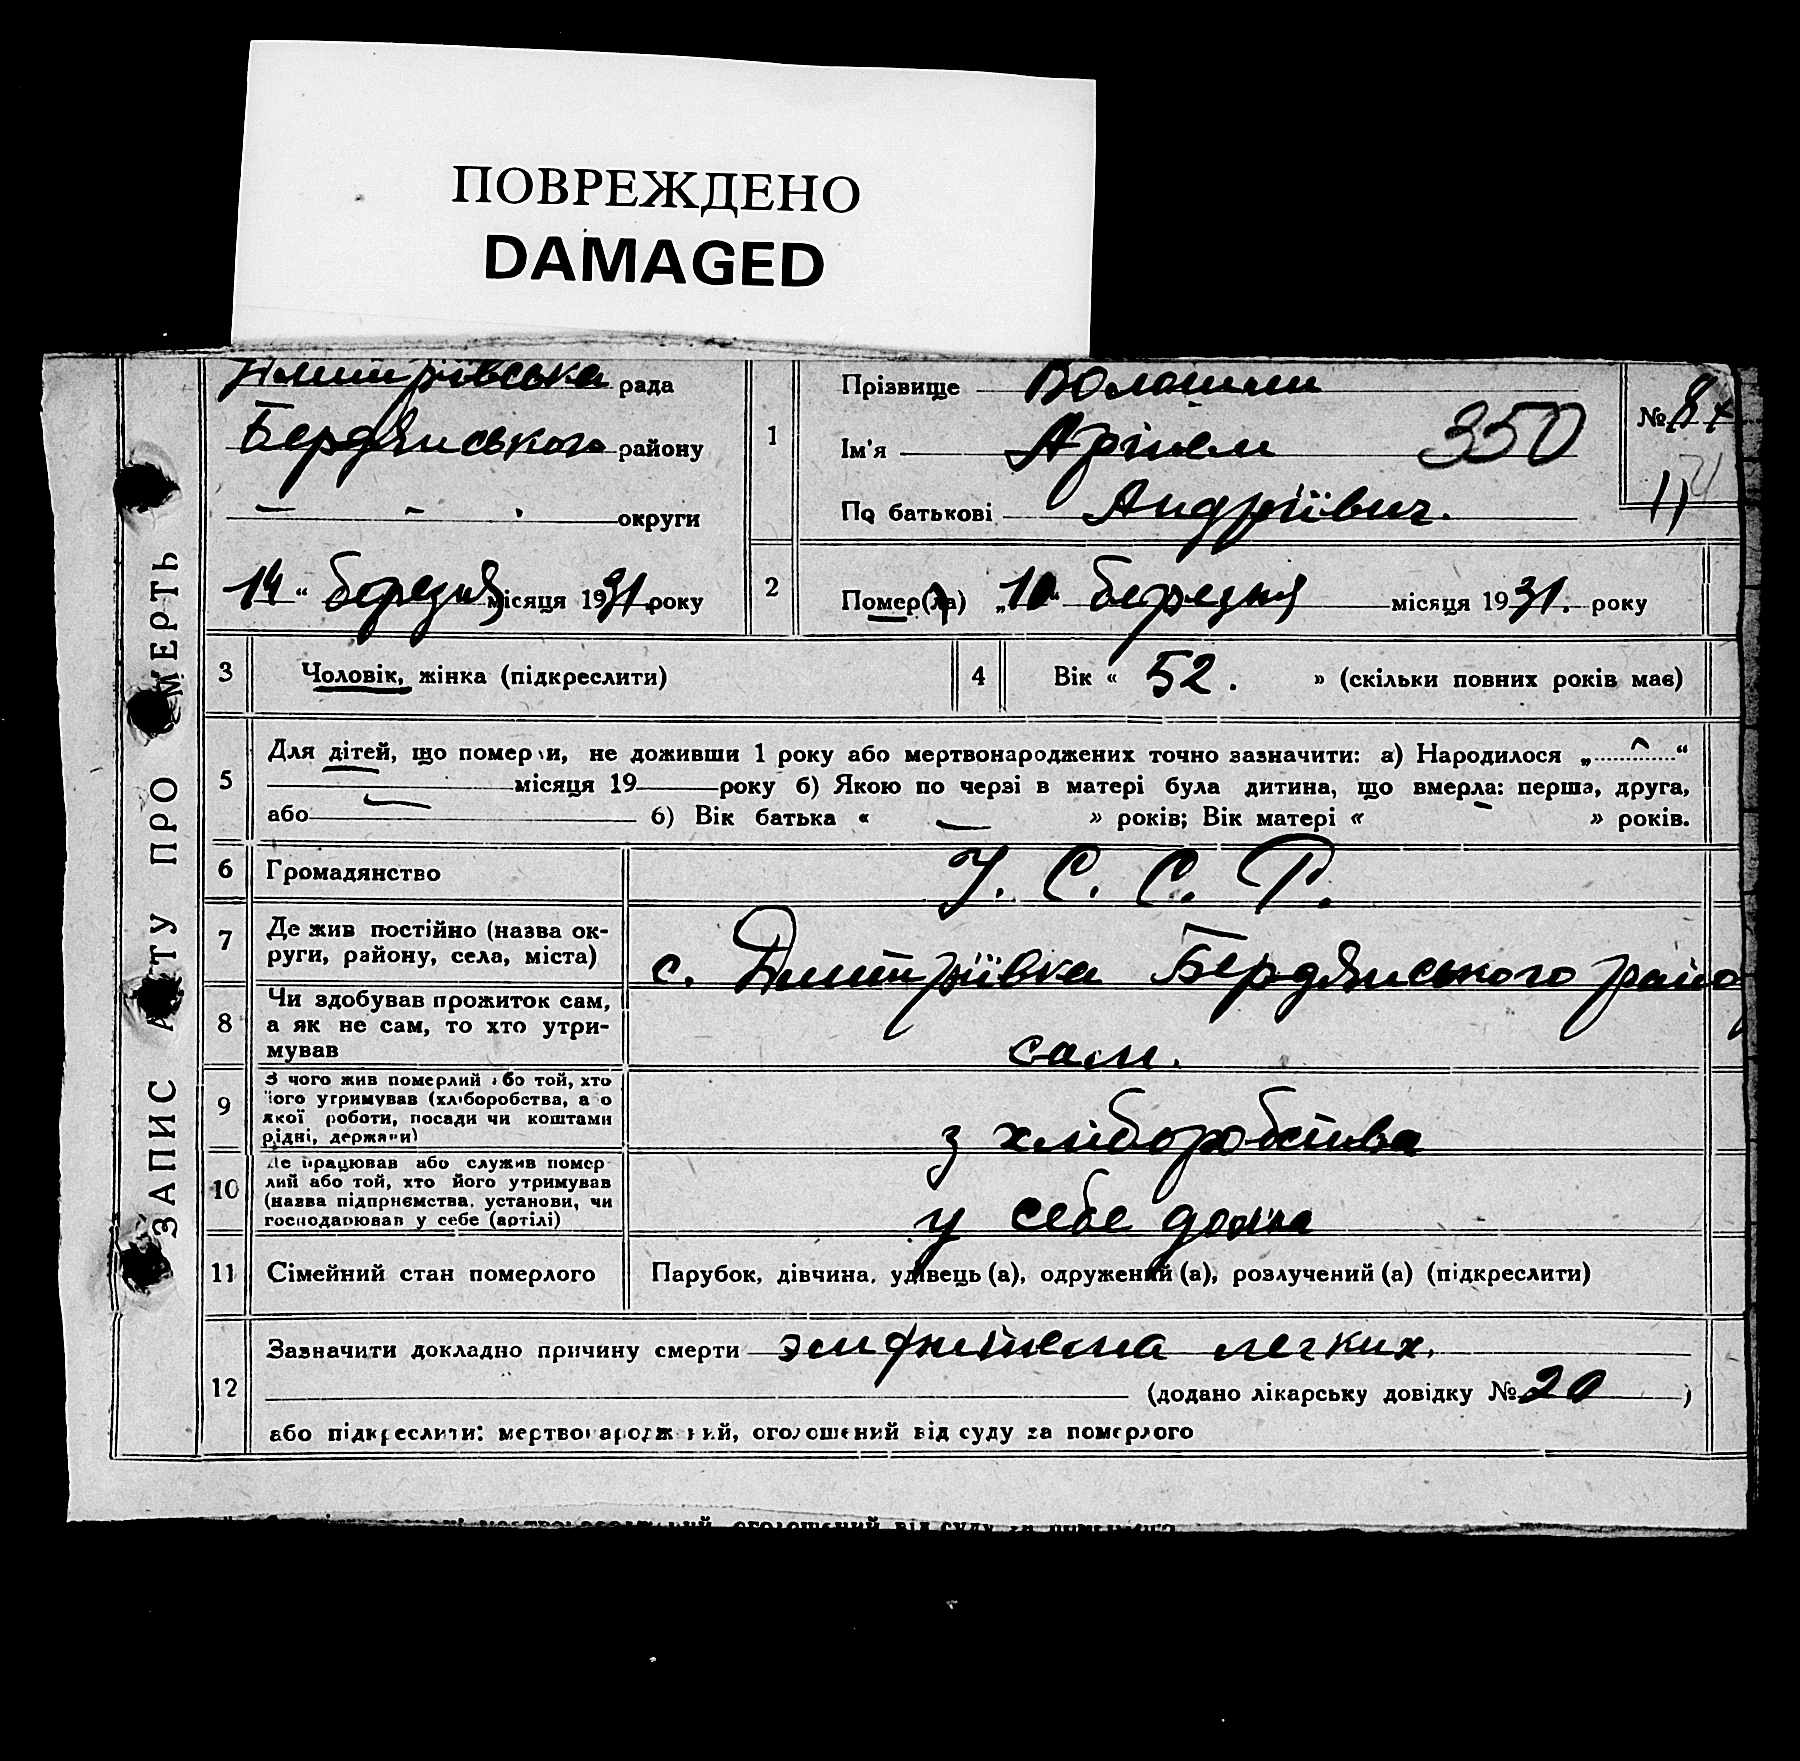 ПОВРЕЖДЕНО
DAMAGED
ЗАПИС АКТУ ПРО СМЕРТЬ
Дмитріївська рада
Бердянського району
округи
14 " березня місяця 1931 року
1
Прізвище Волошин
Ім'я 350
По батькові Андріївич.
№
11
2
Помер(ла) „10" березня місяця 1931. року
3
Чоловік, жінка (підкреслити)
4
Вік « 52. » (скільки повних років має)
5
Для дітей, що померли, не доживши 1 року або мертвонароджених точно зазначити: а) Народилося „ “
місяця 19 року б) Якою по черзі в матері була дитина, що вмерла: перша, друга,
або б) Вік батька « — » років; Вік матері « — » років.
6
Громадянство
У. С. С. Р.
7
Де жив постійно (назва ок-
руги, району, села, міста)
с. Дмитріївка Бердянського райо
8
Чи здобував прожиток сам,
а як не сам, то хто утри-
мував
сам.
9
З чого жив померлий або той, хто
його утримував (хліборобства, а о
якої роботи, посади чи коштами
рідні, держави)
з хліборобства
10
Де працював або служив помер-
лий або той, хто його утримував
(назва підприємства, установи, чи
господарював у себе (артілі)
у себе дома
11
Сімейний стан померлого
Парубок, дівчина, удівець (а), одружений (а), розлучений (а) (підкреслити)
12
Зазначити докладно причину смерти легких.
(додано лікарську довідку № 20 )
або підкреслити: мертвонароджений, оголошений від суду за померлого
оголошений від суду за померлого